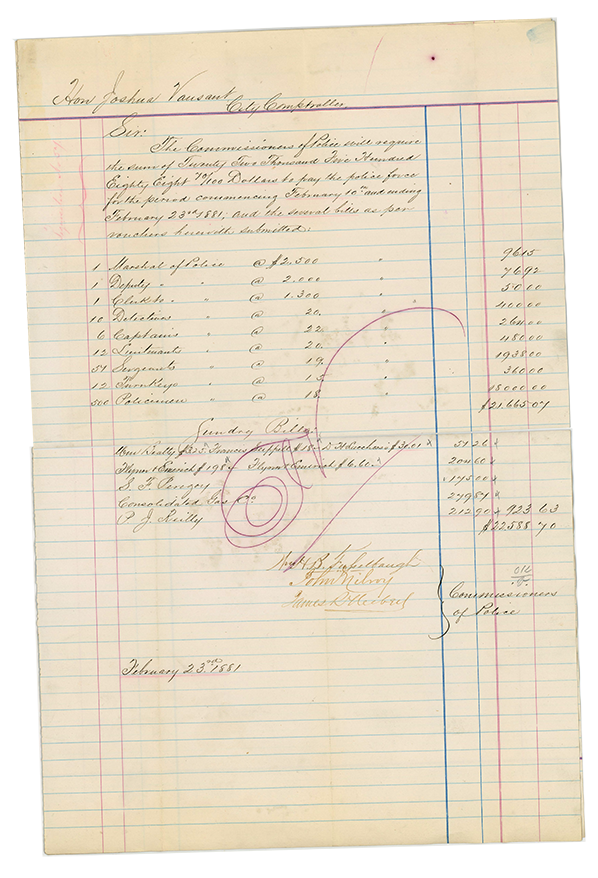 Hon Joshua Vansant
City Comptroller
Sir:
The Commissioners of Police will require
the sum of Twenty Two Thousand Five Hundred
Eighty Eight 70/100 Dollars to pay the police force
for the period commencing February 10th and ending
February 23rd 1881, and the several bills as per
vouchers herewith submitted:
1 Marshal of Police @ $2.500 " 9615
1 Deputy " " @ 2.000 " 7692
1 Clerk to " " @ 1.300 " 5000
10 Detectives " @ 20. " 40000
6 Captains " @ 22. " 26400
12 Lieutenants " @ 20. " 48000
51 Sergeants " @ 19. " 193800
12 Turnkeys " @ 15. " 36000
500 Policemen " @ 18. " 1800000
$21.66507
Sundry Bills
$3.01 5126
Flynn & Emrich $198 Flynn & Emrich $6.60 20460
S. F. 17500
Consolidated Gas Co 27987
P. J. Reilly 21290 923 63
$22588 70
OK
John Milroy
James R
Commissioners
of Police
OK
February 23rd 1881